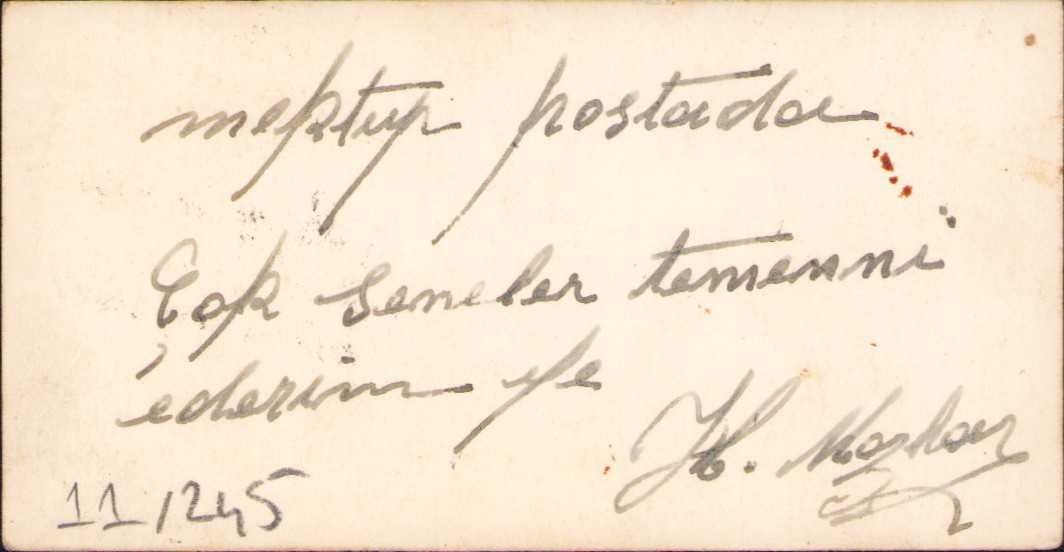 mektup postada
Çok seneler temenni
ederim
H.
11/245